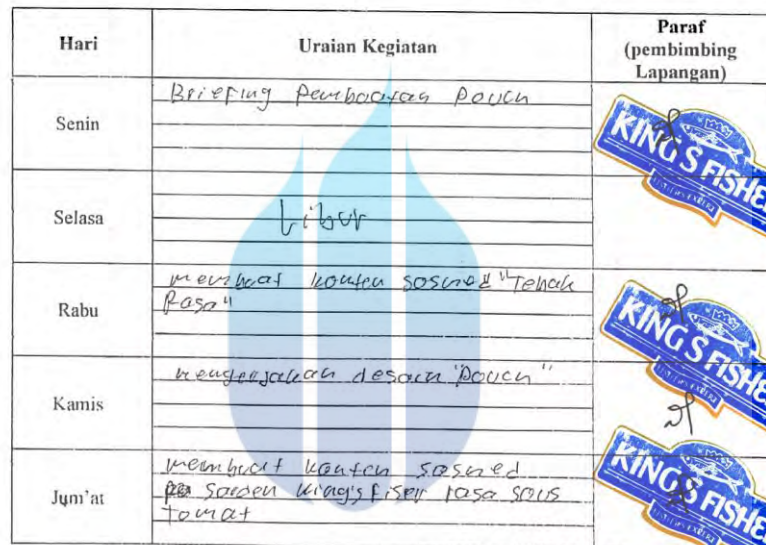 Hari
Uraian Kegiatan
Paraf
(pembimbing
Lapangan)
Senin
Briefing Pembuatan Pouch
KING'S FISHE
Selasa
Libur
Rabu
membuat konten sosmed "Tebak
Rasa"
KING'S FISHE
Kamis
mengerjakan desain "Pouch"
Jum'at
membuat konten sosmed
Sarden King's Fiser rasa saus
tomat
KING'S FISHE